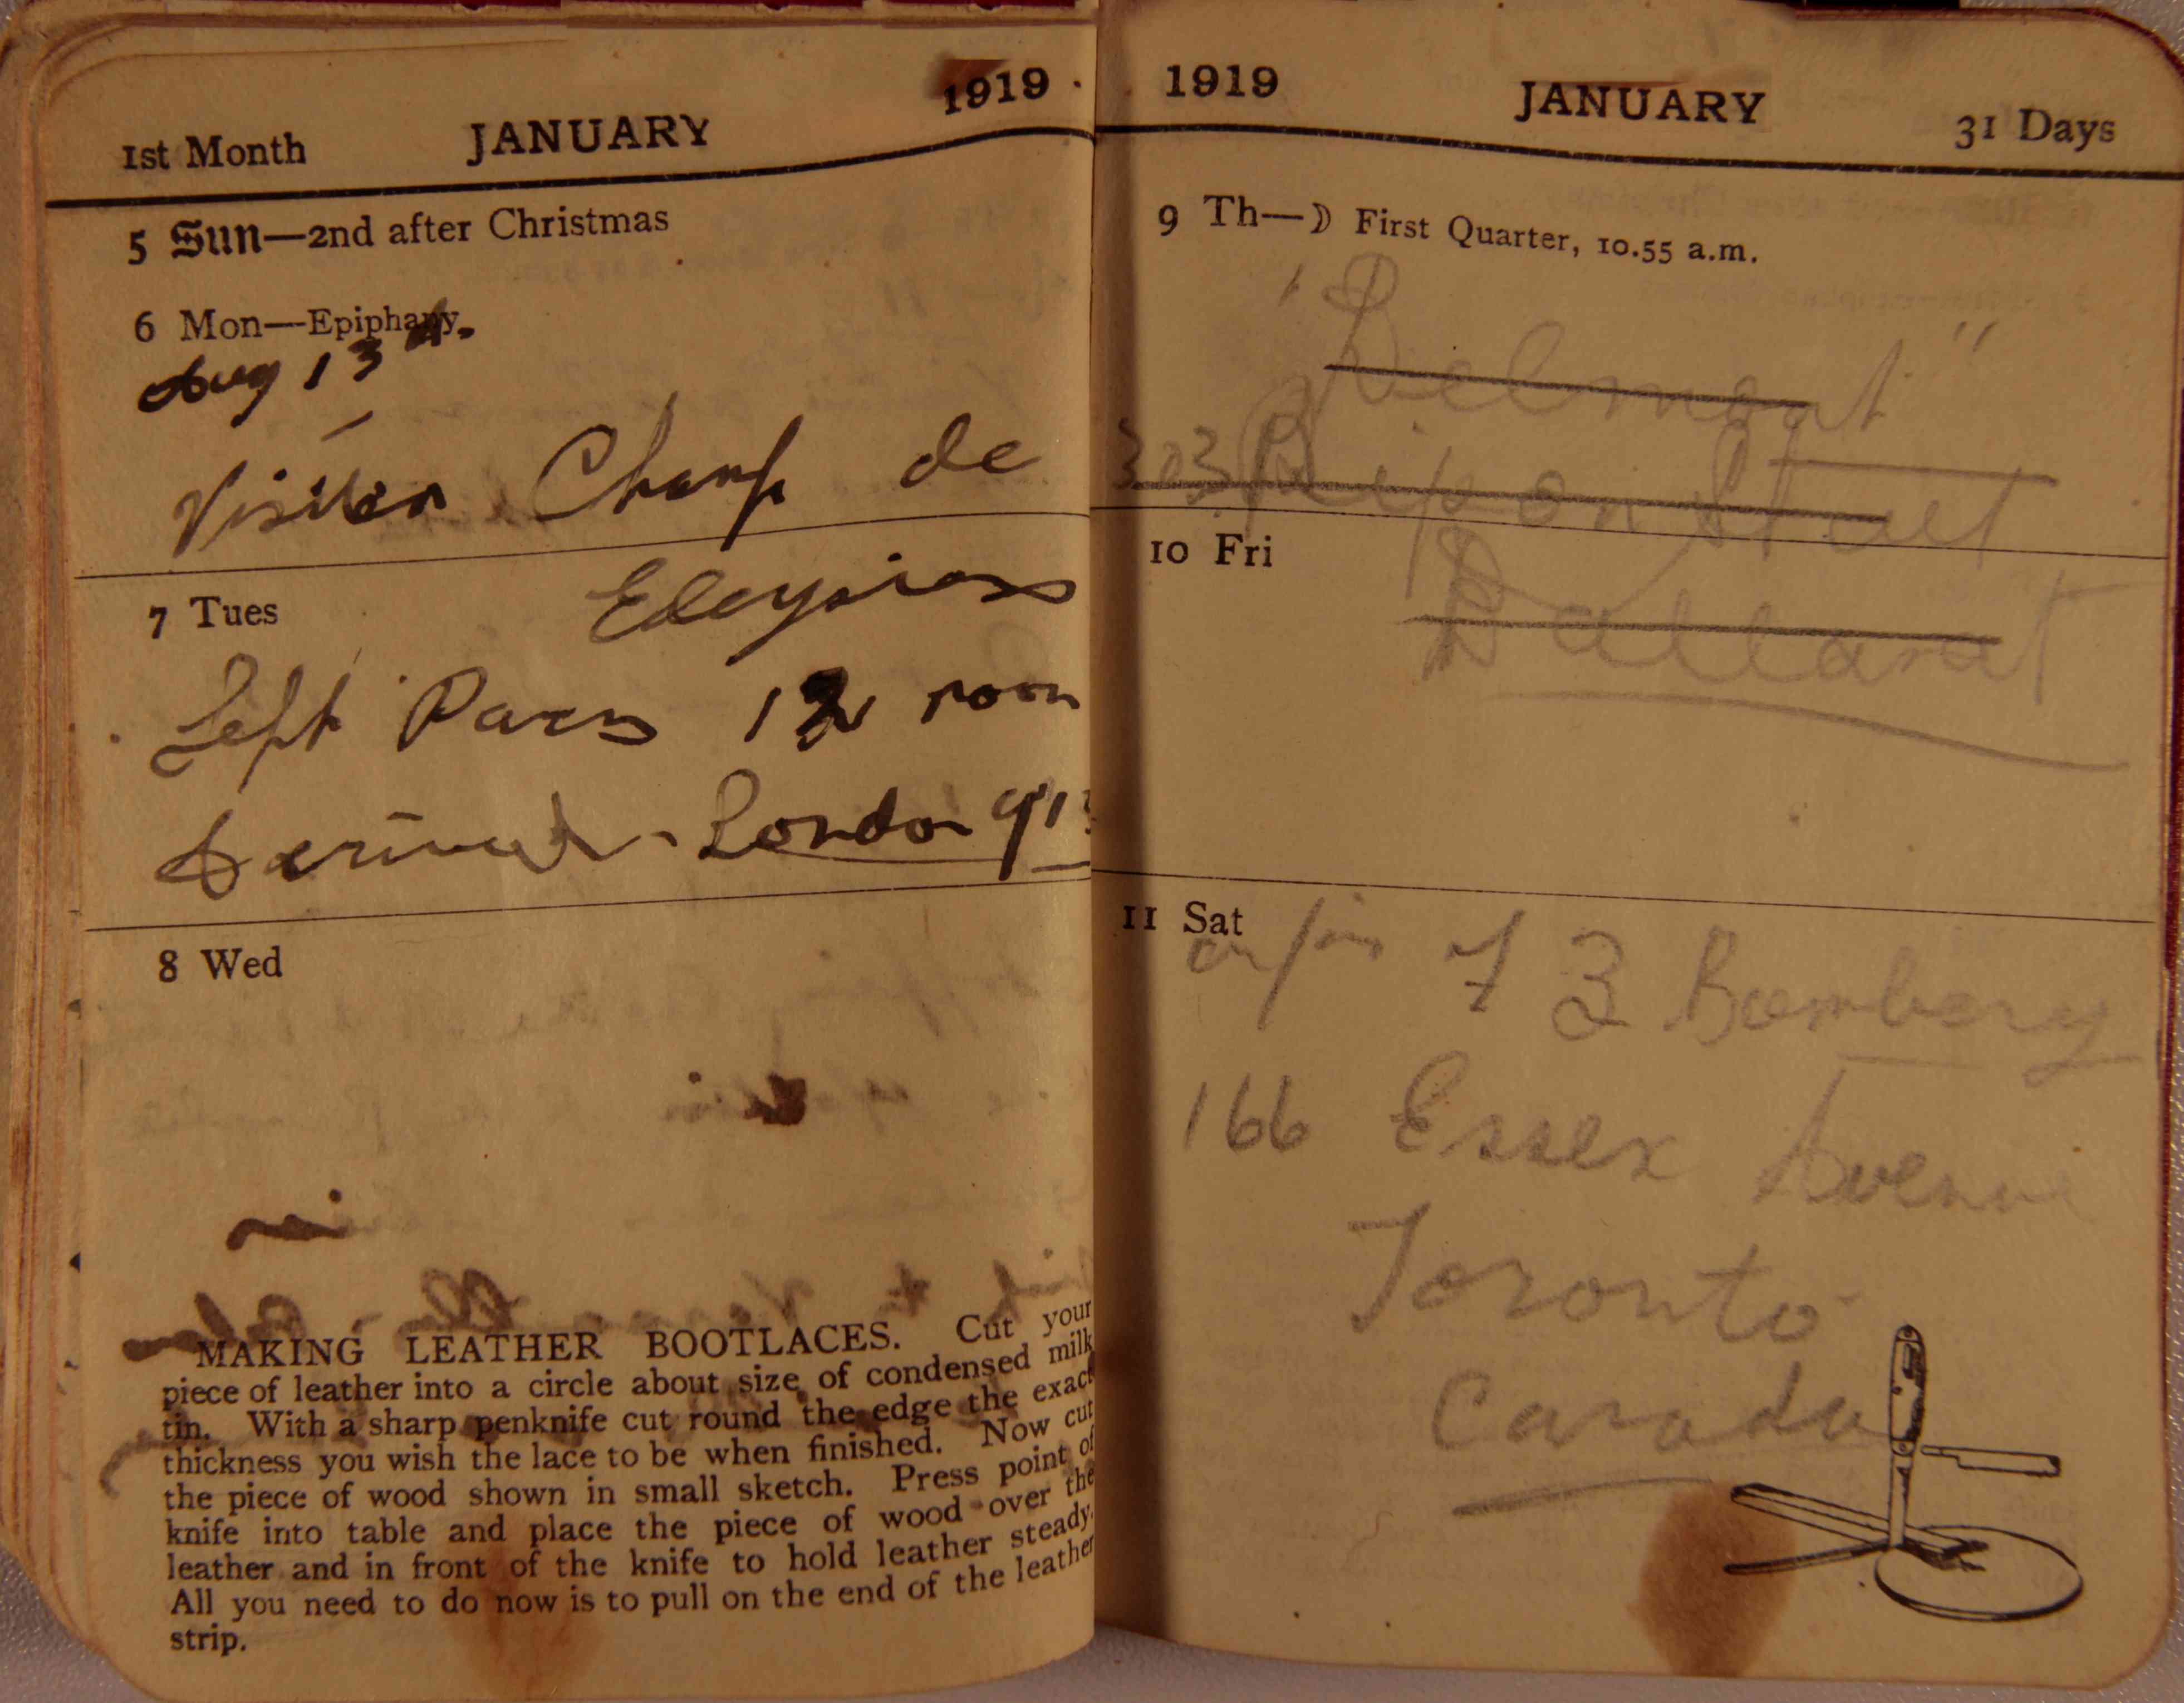 1st Month JANUARY 1919
5 Sun—2nd after Christmas
6 Mon—Epiphany
Aug 13th
Visiten Champ de
7 Tues
Eleysiass
Left Paris 12 noon
Arrived - London 9.1
8 Wed
MAKING LEATHER BOOTLACES. Cut your
piece of leather into a circle about size of condensed milk
tin. With a sharp penknife cut round the edge the exact
thickness you wish the lace to be when finished. Now cut
the piece of wood shown in small sketch. Press point of
knife into table and place the piece of wood over the
leather and in front of the knife to hold leather steady.
All you need to do now is to pull on the end of the leather
strip.
1919 JANUARY 31 Days
9 Th—☽ First Quarter, 10.55 a.m.
"Delmont"
303 Ripon Street
10 Fri
Ballarat
11 Sat
3 Bambery
166 Essex Avenue
Toronto
Canada